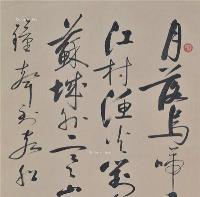 月落烏啼
江村漁火對
蘇城外寒山
鐘聲到客船